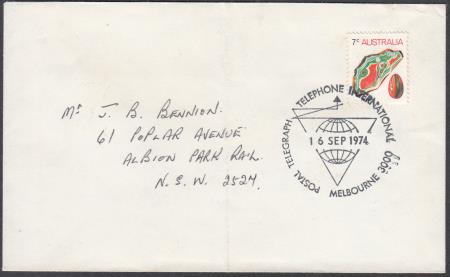 7c AUSTRALIA
POSTAL TELEGRAPH TELEPHONE INTERNATIONAL
16 SEP 1974
MELBOURNE 3000
Mr J. B. BENNION.
61 POPLAR AVENUE
ALBION PARK RAIL.
N.S.W. 2527.